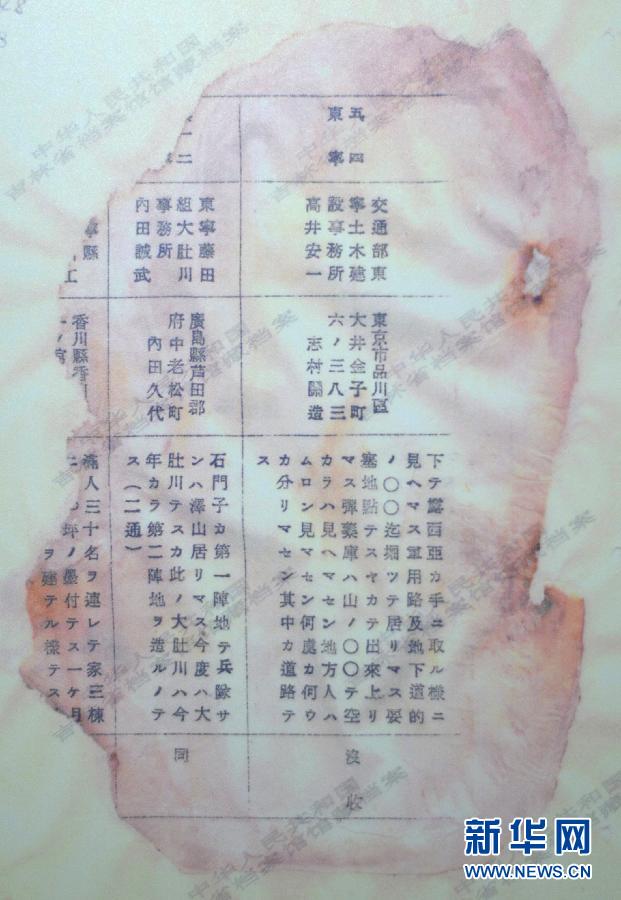 五四
東寧
交通部東
寧土木建
設事務所
高井安一
東京市品川區
大井金子町
六ノ三八三
志村 造
下テ露西亞カ手ニ取ル樣ニ
見ヘマス軍用路及地下道的
ノ〇〇迄堀ツテ居リマス要
塞地點テスヤカテ出來上リ
マス彈藥庫ハ山ノ〇〇テ空
カラハ見ヘマセン地方人ハ
ムロン見マセン何處カ何ウ
カ分リマセン其中カ道路テ
ス
沒收
一二
東寧藤田
組大肚川
事務所
內田誠武
廣島縣芦田郡
府中老松町
內田久代
石門子カ第一陣地テ兵隊サ
ンハ澤山居リマス今度ハ大
肚川テスカ此ノ大肚川ハ今
年カラ第二陣地ヲ造ルノテ
ス(二通)
同
寧縣
工
香川縣香
滿人三十名ヲ連レテ家三棟
ニ 坪ノ墨付テス一ケ月
ヲ建テル樣テス
中华人民共和国
吉林省档案馆馆藏档案
新华网
WWW.NEWS.CN